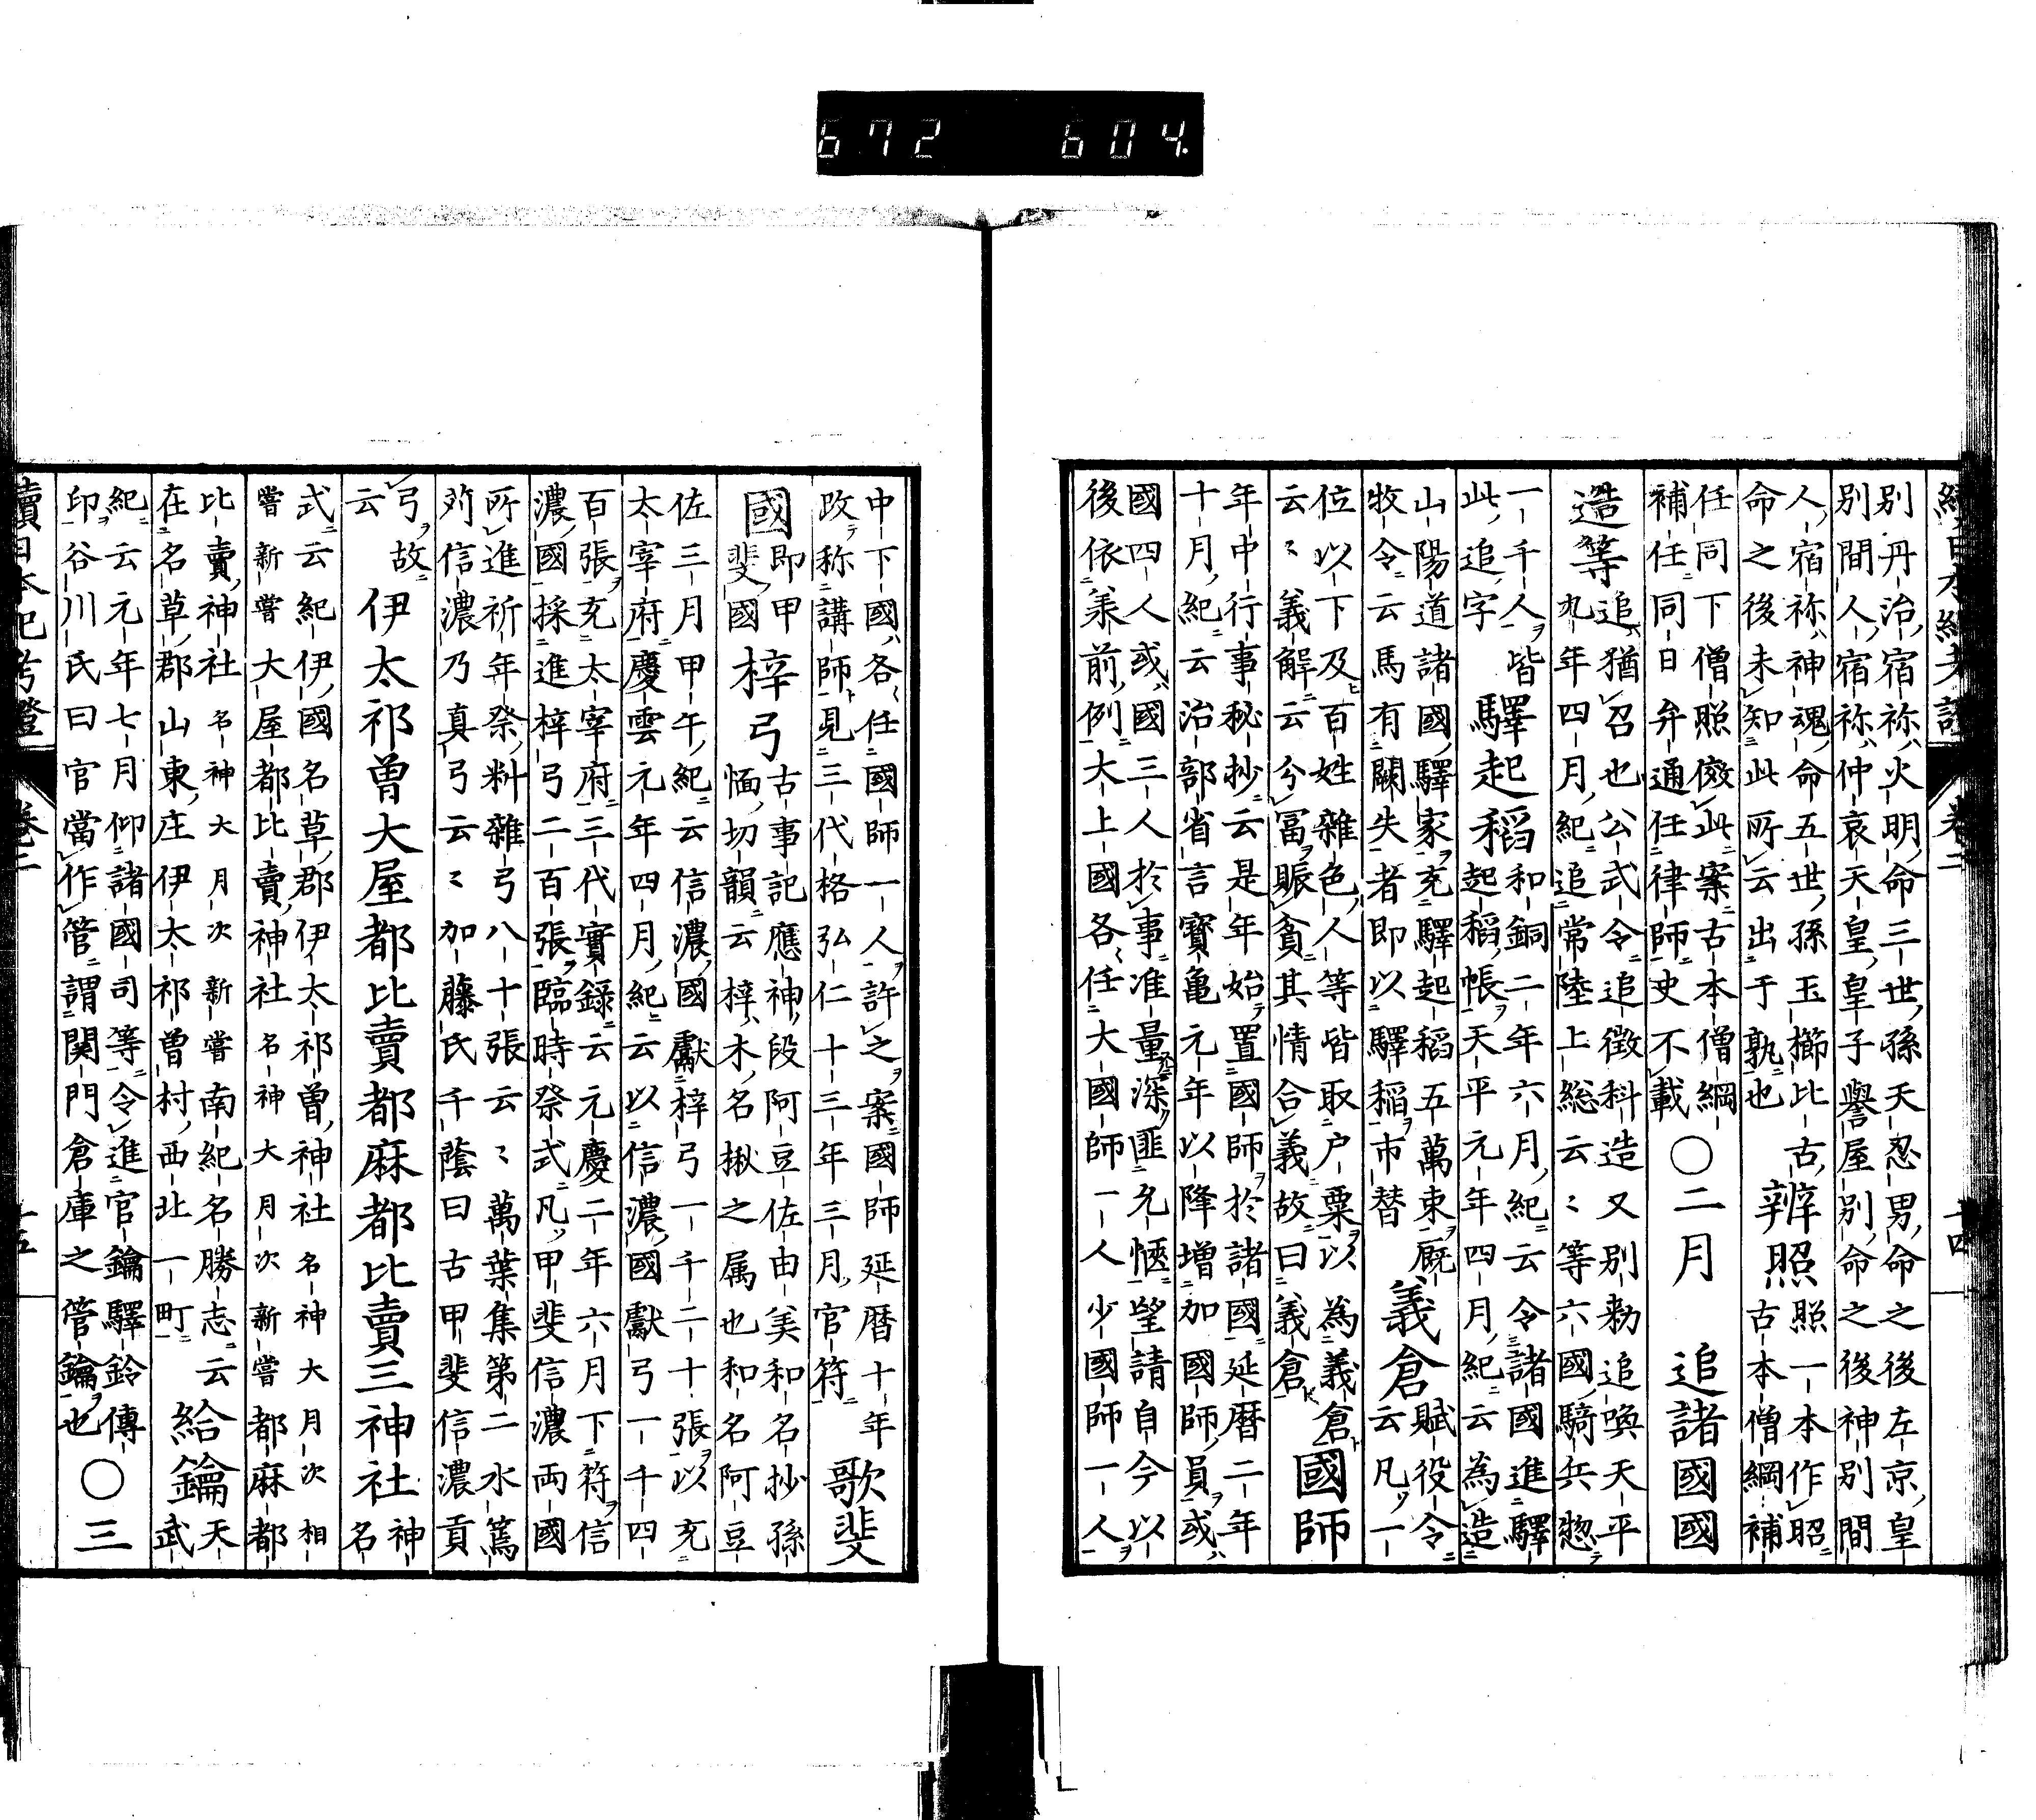 672 604
續日本紀考證 卷二 十四
別丹治宿祢火明命三世孫天忍男命之後左京皇
別間人宿祢仲哀天皇皇子譽屋別命之後神別間
人宿祢神魂命五世孫玉櫛比古
命之後未知此所云出于孰也
辨照
照一本作昭
古本僧綱補
任同下僧照儌此案古本僧綱
補任同日弁通任律師史不載
〇二月 追諸國國
造等
追猶召也公武令追徴科造又別勅追喚天平
九年四月紀追常陸上総云〻等六國騎兵惣
一千人皆
此追字
驛起稻
和銅二年六月紀云令諸國進驛
起稻帳天平元年四月紀云為造
山陽道諸國驛家充驛起稻五萬束厩
牧令云馬有闕失者即以驛稲市替
義倉
賦役令
云凡一
位以下及百姓雜色人等皆取户粟以為義倉
云〻義解云分冨賑貧其情合義故曰義倉
國師
年中行事秘抄云是年始置國師於諸國延曆二年
十月紀云治部省言寶亀元年以降増加國師員或
國四人或國三人於事准量深匪允愜望請自今以
後依承前例大上國各任大國師一人少國師一人
中下國各任國師一人許之案國師延暦十年
改称講師見三代格弘仁十三年三月官符
歌斐
國
即甲
斐國
梓弓
古事記應神段阿豆佐由美和名抄孫
愐切韻云梓木名楸之属也和名阿豆
佐三月甲午紀云信濃國獻梓弓一千二十張以充
太宰府慶雲元年四月紀云以信濃國獻弓一千四
百張充太宰府三代實錄云元慶二年六月下符信
濃國採進梓弓二百張臨時祭式凡甲斐信濃両國
所進祈年祭料雜弓八十張云〻萬葉集第二水篶
苅信濃乃真弓云〻加藤氏千蔭曰古甲斐信濃貢
弓故
云
伊太祁曽大屋都比賣都麻都比賣三神社
神
名
式云紀伊國名草郡伊太祁曽神社名神大月次相
嘗新嘗大屋都比賣神社名神大月次新嘗都麻都
比賣神社名神大月次新嘗南紀名勝志云
在名草郡山東庄伊太祁曽村西北一町
給鑰
天
武
紀云元年七月仰諸國司等令進官鑰驛鈴傳
印谷川氏曰官當作管謂関門倉庫之管鑰也
〇三
續日本紀考證 卷二 十五